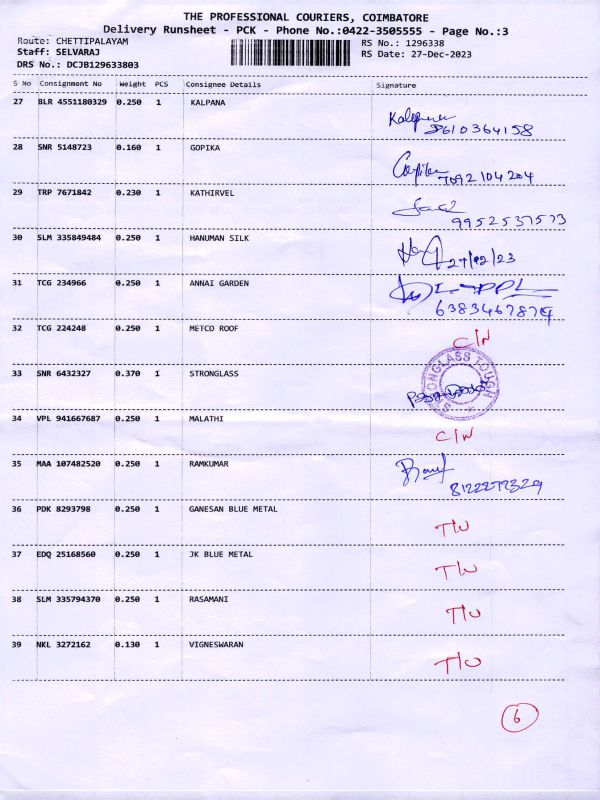 THE PROFESSIONAL COURIERS, COIMBATORE
Delivery Runsheet - PCK - Phone No.:0422-3505555 - Page No.:3
Route: CHETTIPALAYAM
RS No.: 1296338
Staff: SELVARAJ
RS Date: 27-Dec-2023
DRS No.: DCJB129633803
S No Consignment No Weight PCS Consignee Details Signature
27 BLR 4551180329 0.250 1 KALPANA
28 SNR 5148723 0.160 1 GOPIKA
7092104204
29 TRP 7671842 0.230 1 KATHIRVEL
9952537573
30 SLM 335849484 0.250 1 HANUMAN SILK
27/12/23
31 TCG 234966 0.250 1 ANNAI GARDEN
6383467874
32 TCG 224248 0.250 1 METCO ROOF
C/N
33 SNR 6432327 0.370 1 STRONGLASS
STRONGLASS TOUGH
34 VPL 941667687 0.250 1 MALATHI
C/N
35 MAA 107482520 0.250 1 RAMKUMAR
8122272329
36 PDK 8293798 0.250 1 GANESAN BLUE METAL
T/U
37 EDQ 25168560 0.250 1 JK BLUE METAL
T/U
38 SLM 335794370 0.250 1 RASAMANI
T/U
39 NKL 3272162 0.130 1 VIGNESWARAN
T/U
6